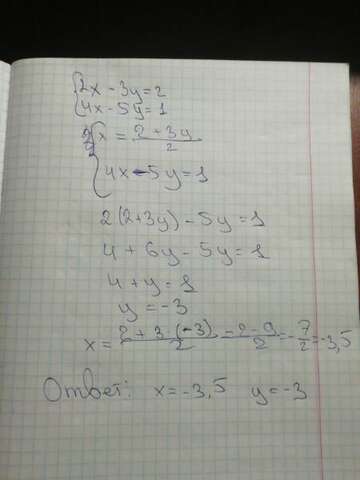 2x - 3y = 2
4x - 5y = 1
x = (2 + 3y)/2
4x - 5y = 1
2(2+3y) - 5y = 1
4 + 6y - 5y = 1
4 + y = 1
y = -3
x = (2 + 3·(-3))/2 = (2 - 9)/2 = -7/2 = -3,5
Ответ: x = -3,5 y = -3